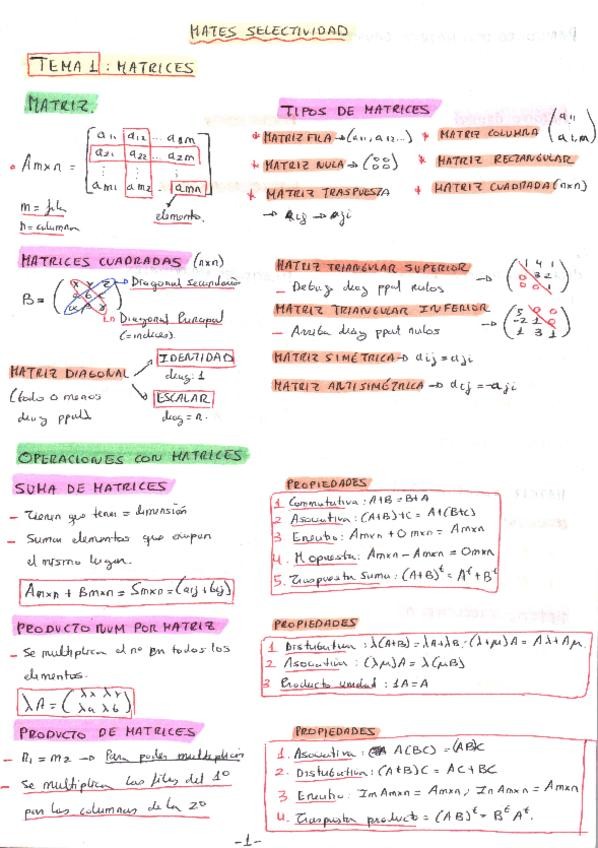 MATES SELECTIVIDAD
TEMA 1: MATRICES
MATRIZ.
Amxn = [a11 a12 ... a1m
a21 a22 ... a2m
am1 am2 ... amn]
m = fila
n = columna
elemento.
TIPOS DE MATRICES
* MATRIZ FILA → (a11, a12...)
* MATRIZ COLUMNA
* MATRIZ NULA → (0 0 0 0)
* MATRIZ RECTANGULAR
* MATRIZ TRASPUESTA
→ aij → aji
* MATRIZ CUADRADA (nxn)
MATRICES CUADRADAS (nxn)
B =
→ Diagonal secundaria
Diagonal Principal
(= indices).
MATRIZ DIAGONAL
(todo 0 menos
diag ppal)
IDENTIDAD
diag: 1
ESCALAR
diag = n.
MATRIZ TRIANGULAR SUPERIOR
- Debajo diag ppal nulos →
(1 4 1
0 3 2
0 0 1)
MATRIZ TRIANGULAR INFERIOR
- Arriba diag ppal nulos →
(5 0 0
-2 1 0
1 3 1)
MATRIZ SIMÉTRICA → aij = aji
MATRIZ ANTISIMÉTRICA → aij = -aji
OPERACIONES CON MATRICES
SUMA DE MATRICES
- Tienen que tener = dimensión
- Suman elementos que ocupan
el mismo lugar.
Amxn + Bmxn = Smxn = (aij + bij)
PROPIEDADES
1 Conmutativa: A+B = B+A
2 Asociativa: (A+B)+C = A+(B+C)
3 E neutro: Amxn + 0mxn = Amxn
4. M opuesta: Amxn - Amxn = 0mxn
5. Traspuesta Suma: (A+B)^t = A^t + B^t
PRODUCTO NUM POR MATRIZ
- Se multiplica el nº por todos los
elementos.
λA = (λx λy
λa λb)
PROPIEDADES
1 Distributiva: λ(A+B) = λA + λB · (λ+μ)A = Aλ + Aμ.
2 Asociativa: (λμ)A = λ(μB)
3 Producto unidad: 1A = A
PRODUCTO DE MATRICES
- n1 = m2 → Para poder multiplicar
- Se multiplica las filas del 1º
por las columnas de la 2º
PROPIEDADES
1. Asociativa: A(BC) = (AB)C
2. Distributiva: (A+B)C = AC + BC
3 E neutro: Im Amxn = Amxn; In Amxn = Amxn
4. Traspuesta producto = (AB)^t = B^t A^t.
-1-